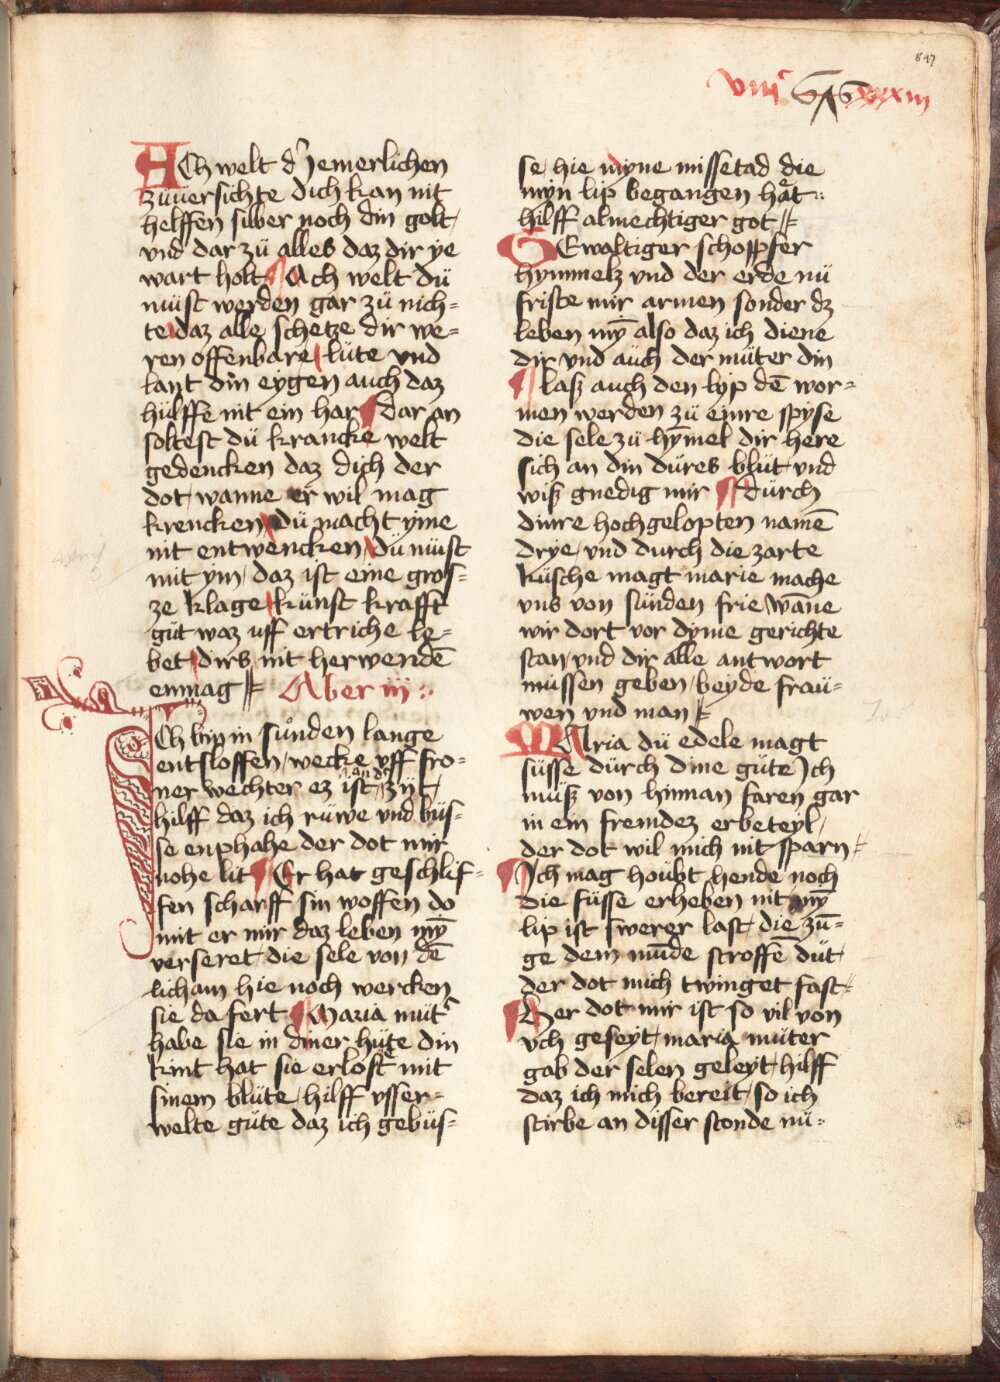 847
viii^c xxxiii
ACh welt d' Jemerlichen
zuuersichte dich kan nit
helffen silber noch din golt /
vnd dar zů alles daz dir ye
wart holt ¶ Ach welt dů
můst werden gar zů nich=
te daz alle schetze dir we=
ren offenbare / lůte vnd
lant din eygen auch daz
hůlffe nit ein har ¶ dar an
soltest dů krancke welt
gedencken daz dich der
dot / wanne er wil mag
krencken / dů macht yme
nit entwencken / dů můst
mit ym / daz ist eine gros=
ze klage / kůnst krafft
gůt waz uff ertriche le=
bet / dirs nit herwendē
enmag // Aber iij :.
ICh bin in sůnden lange
entsloffen / wecke vff fro=
ner wechter ez ist an d' zijt /
hilff daz ich růwe vnd bůs=
se enphahe der dot mir
nohe lit ¶ Er hat geschlif=
fen scharff sin woffen do
mit er mir daz leben mȳ
verseret die sele von dē
licham hie noch wercken
sie da fert ¶ Maria mut'
habe sie in diner hůte din
kint hat sie erlost mit
sinem blůte / hilff vsser=
welte gůte daz ich gebůs=
se hie myne missetad die
myn lip begangen hat :.
hilff almechtiger got //
GEwaltiger schoppfer
hymmelz vnd der erde nů
friste mir armen sonder dz
leben mȳ also daz ich diene
dir vnd auch der můter din
¶ lasz auch den lyp dē wor=
men werden zů einre spyse
die sele zů hȳmel dir here
sich an din důres blůt vnd
wisz gnedig mir ¶ Důrch
dinre hochgelopten namē
drye / vnd durch die zarte
kůsche magt marie mache
vns von sůnden frie / wāne
wir dort vor dyme gerichte
stan / vnd dir alle antwort
můssen geben / beyde fraů=
wen vnd man //
MAria dů edele magt
sůsse důrch dine gůte Jch
můsz von hinnan faren gar
in ein fremdez erbeteyl /
der dot wil mich nit sparn //
¶ Jch mag hoůbt hende noch
die fůsse erheben nit mȳ
lip ist swerer last / die zů=
ge dem mūde stroffē důt /
der dot mich twinget fast //
¶ Der dot mir ist so vil von
vch geseyt / maria můter
gab der selen geleyt / hilff
daz ich mich bereit / so ich
stirbe an disser stonde nů :.